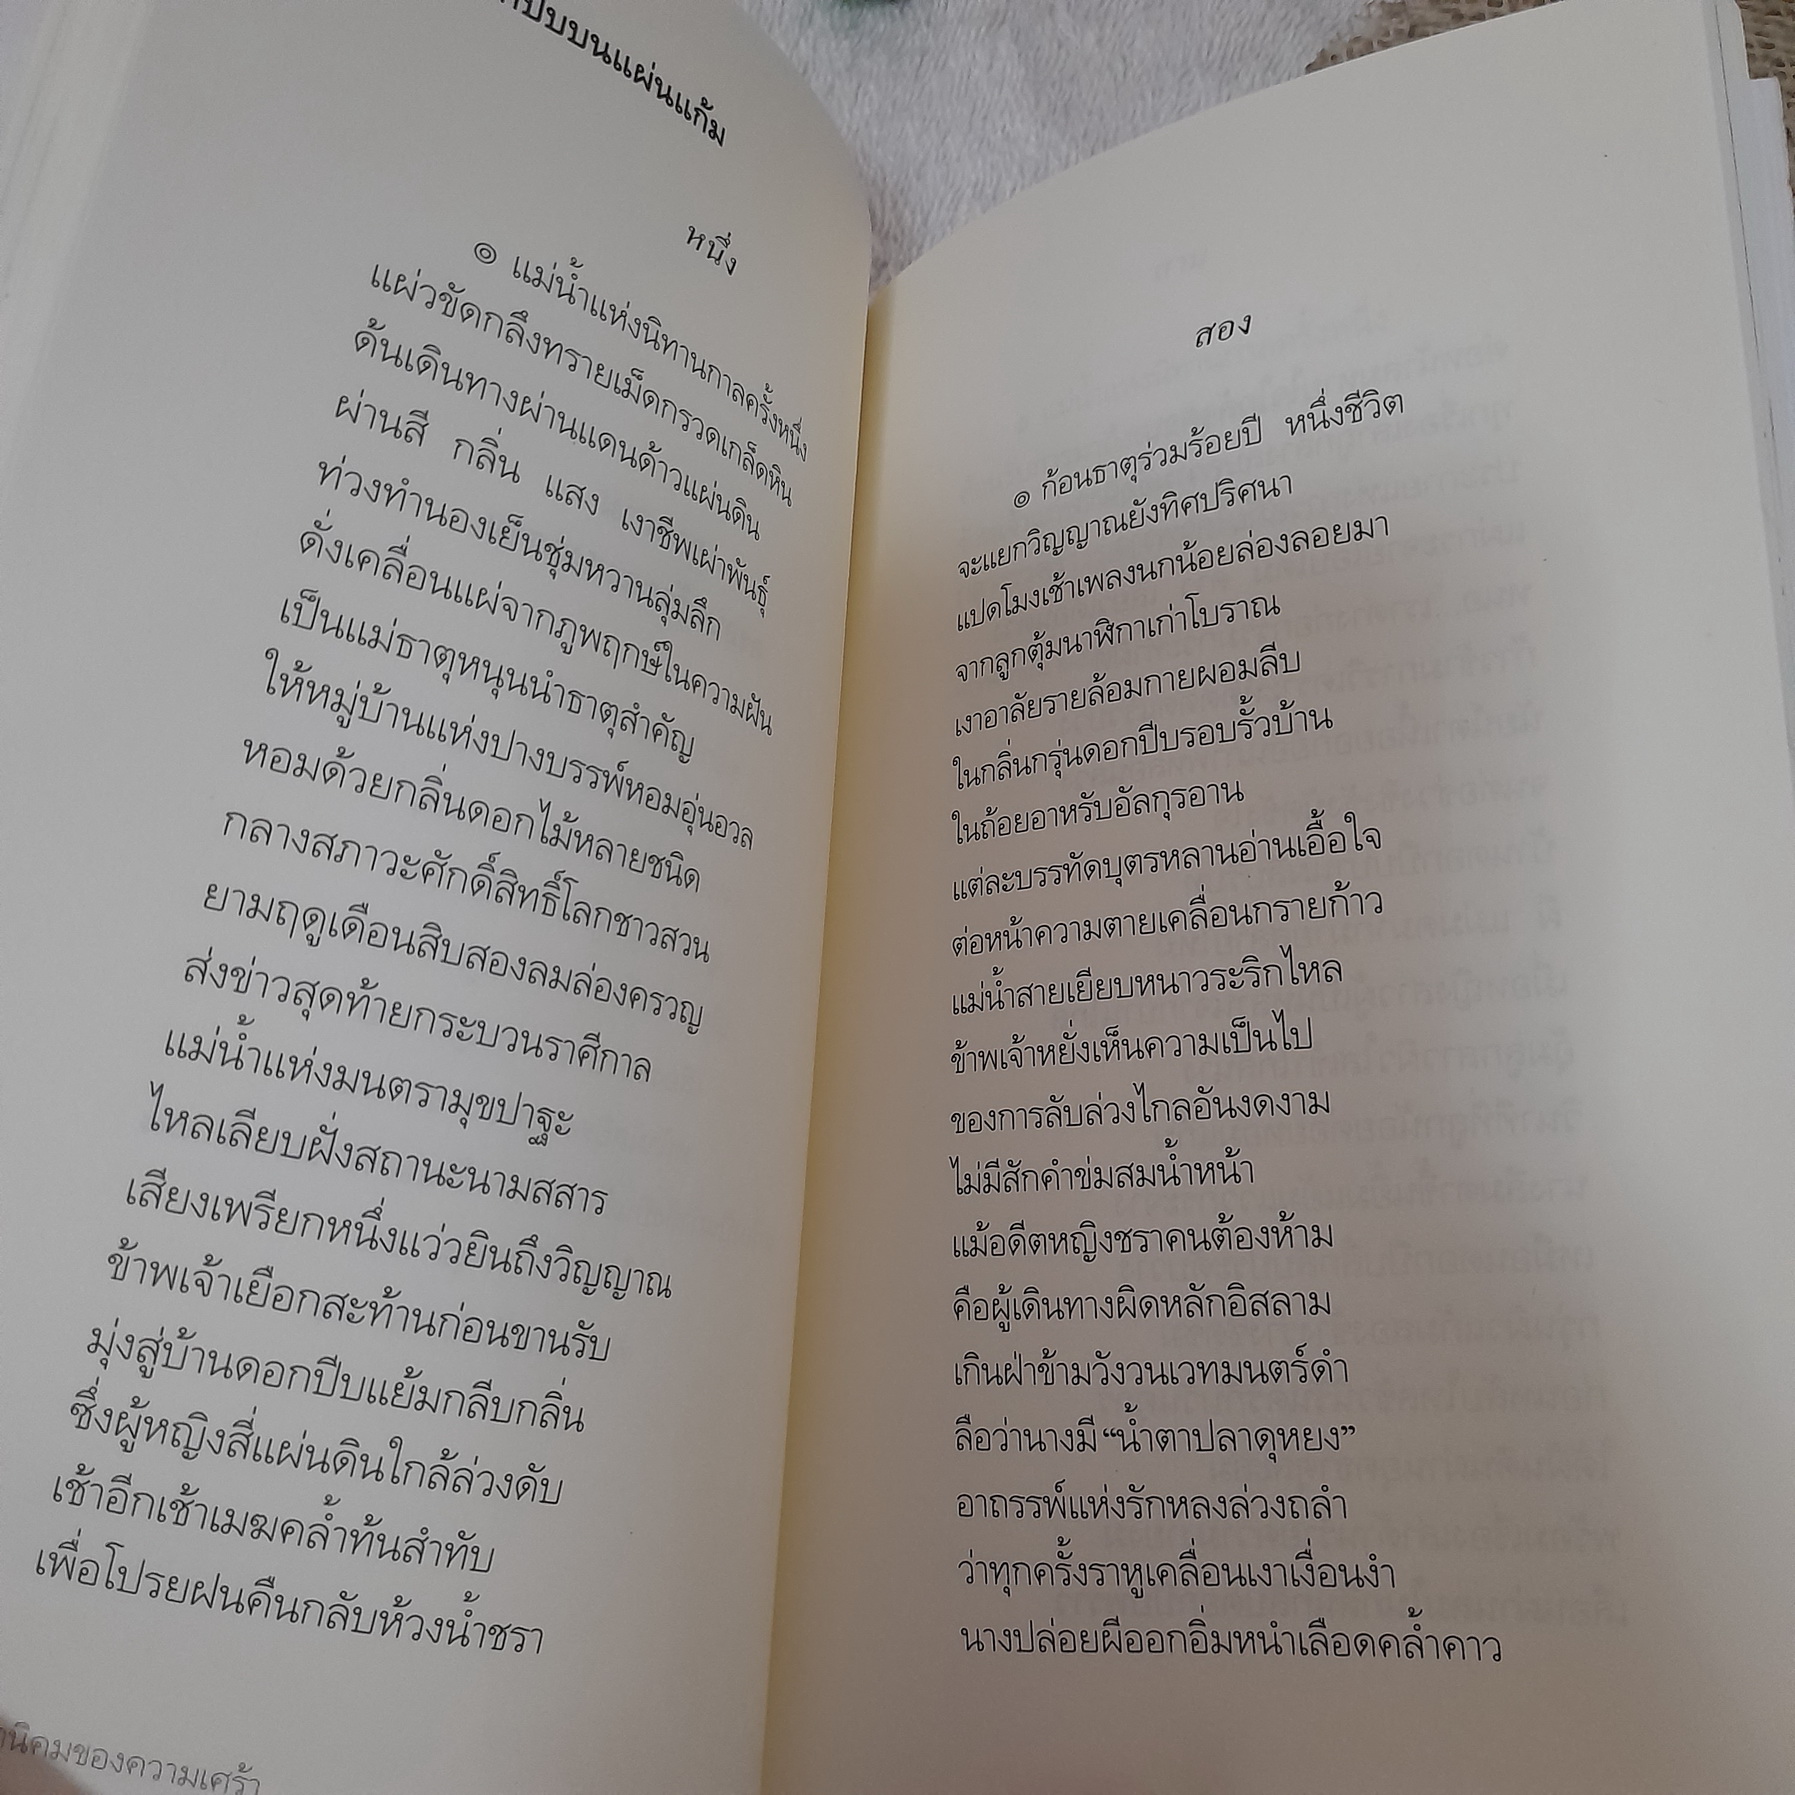 บนแผ่นแก้ม
หนึ่ง
๏ แม่น้ำแห่งนิทานกาลครั้งหนึ่ง
แผ่วขัดกลึงทรายเม็ดกรวดเกล็ดหิน
ด้นเดินทางผ่านแดนด้าวแผ่นดิน
ผ่านสี กลิ่น แสง เงาชีพเผ่าพันธุ์
ท่วงทำนองเย็นชุ่มหวานลุ่มลึก
ดั่งเคลื่อนแผ่จากภูพฤกษ์ในความฝัน
เป็นแม่ธาตุหนุนนำธาตุสำคัญ
ให้หมู่บ้านแห่งปางบรรพ์หอมอุ่นอวล
หอมด้วยกลิ่นดอกไม้หลายชนิด
กลางสภาวะศักดิ์สิทธิ์โลกชาวสวน
ยามฤดูเดือนสิบสองลมล่องครวญ
ส่งข่าวสุดท้ายกระบวนราศีกาล
แม่น้ำแห่งมนตรามุขปาฐะ
ไหลเลียบฝั่งสถานะนามสสาร
เสียงเพรียกหนึ่งแว่วยินถึงวิญญาณ
ข้าพเจ้าเยือกสะท้านก่อนขานรับ
มุ่งสู่บ้านดอกปีบแย้มกลีบกลิ่น
ซึ่งผู้หญิงสี่แผ่นดินใกล้ล่วงดับ
เช้าอีกเช้าเมฆคล้ำท้นสำทับ
เพื่อโปรยฝนคืนกลับห้วงน้ำชรา
นิคมของความเศร้า
สอง
๏ ก้อนธาตุร่วมร้อยปี หนึ่งชีวิต
จะแยกวิญญาณยังทิศปริศนา
แปดโมงเช้าเพลงนกน้อยล่องลอยมา
จากลูกตุ้มนาฬิกาเก่าโบราณ
เงาอาลัยรายล้อมกายผอมลีบ
ในกลิ่นกรุ่นดอกปีบรอบรั้วบ้าน
ในถ้อยอาหรับอัลกุรอาน
แต่ละบรรทัดบุตรหลานอ่านเอื้อใจ
ต่อหน้าความตายเคลื่อนกรายก้าว
แม่น้ำสายเยียบหนาวระริกไหล
ข้าพเจ้าหยั่งเห็นความเป็นไป
ของการลับล่วงไกลอันงดงาม
ไม่มีสักคำข่มสมน้ำหน้า
แม้อดีตหญิงชราคนต้องห้าม
คือผู้เดินทางผิดหลักอิสลาม
เกินฝ่าข้ามวังวนเวทมนตร์ดำ
ลือว่านางมี “น้ำตาปลาดุหยง”
อาถรรพ์แห่งรักหลงล่วงถลำ
ว่าทุกครั้งราหูเคลื่อนเงาเงื่อนงำ
นางปล่อยผีออกอิ่มหนำเลือดคล้ำคาว